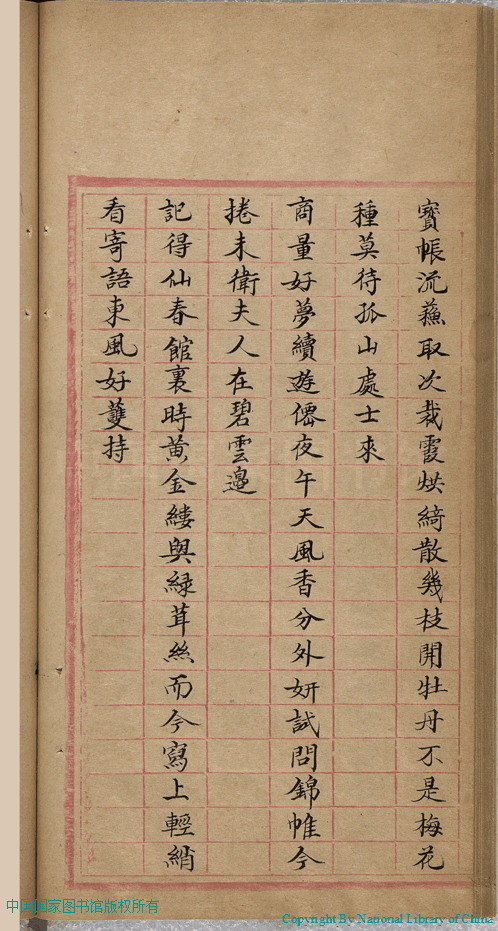 寳帳流蘇取次裁霞烘綺散幾枝開牡丹不是梅花
種莫待孤山處士來
商量好夢續遊僊夜午天風香分外妍試問錦帷今
捲未衛夫人在碧雲邊
記得仙春館裏時黄金縷與緑茸絲而今寫上輕綃
看寄語東風好䕶持
中国国家图书馆版权所有
Copyright By National Library of China